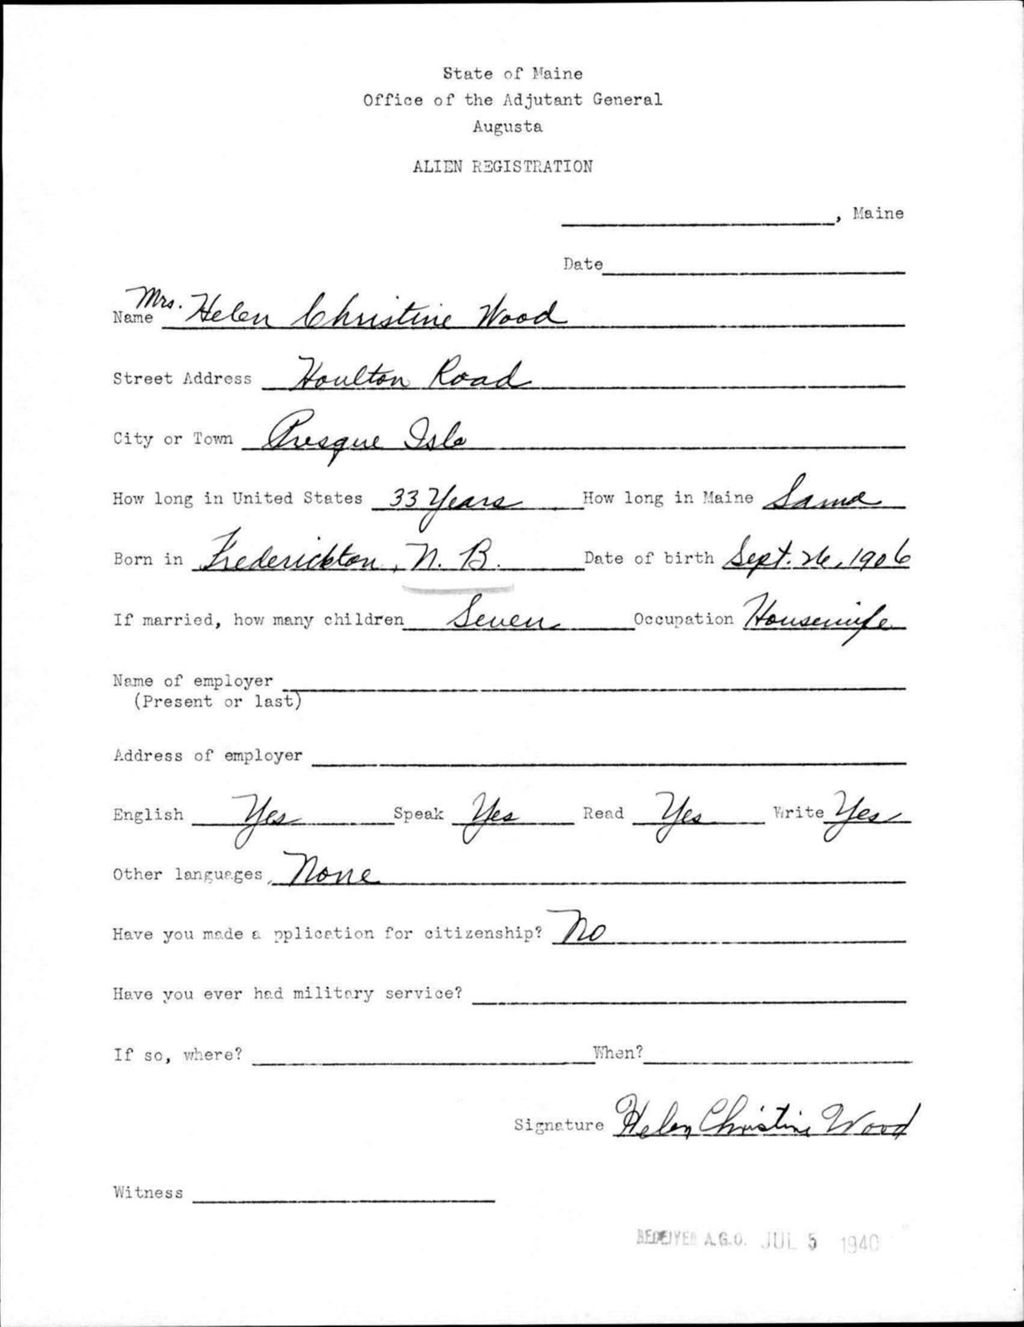 State of Maine
Office of the Adjutant General
Augusta
ALIEN REGISTRATION
, Maine
Date
Name Mrs. Helen Christine Wood
Street Address Houlton Road
City or Town Presque Isle
How long in United States 33 Years How long in Maine Same
Born in Frederickton, N. B. Date of birth Sept. 26, 1906
If married, how many children Seven Occupation Housewife
Name of employer
(Present or last)
Address of employer
English Yes Speak Yes Read Yes Write Yes
Other languages None
Have you made a pplication for citizenship? No
Have you ever had military service?
If so, where? When?
Signature Helen Christine Wood
Witness
RECEIVED A.G.O. JUL 5 1940